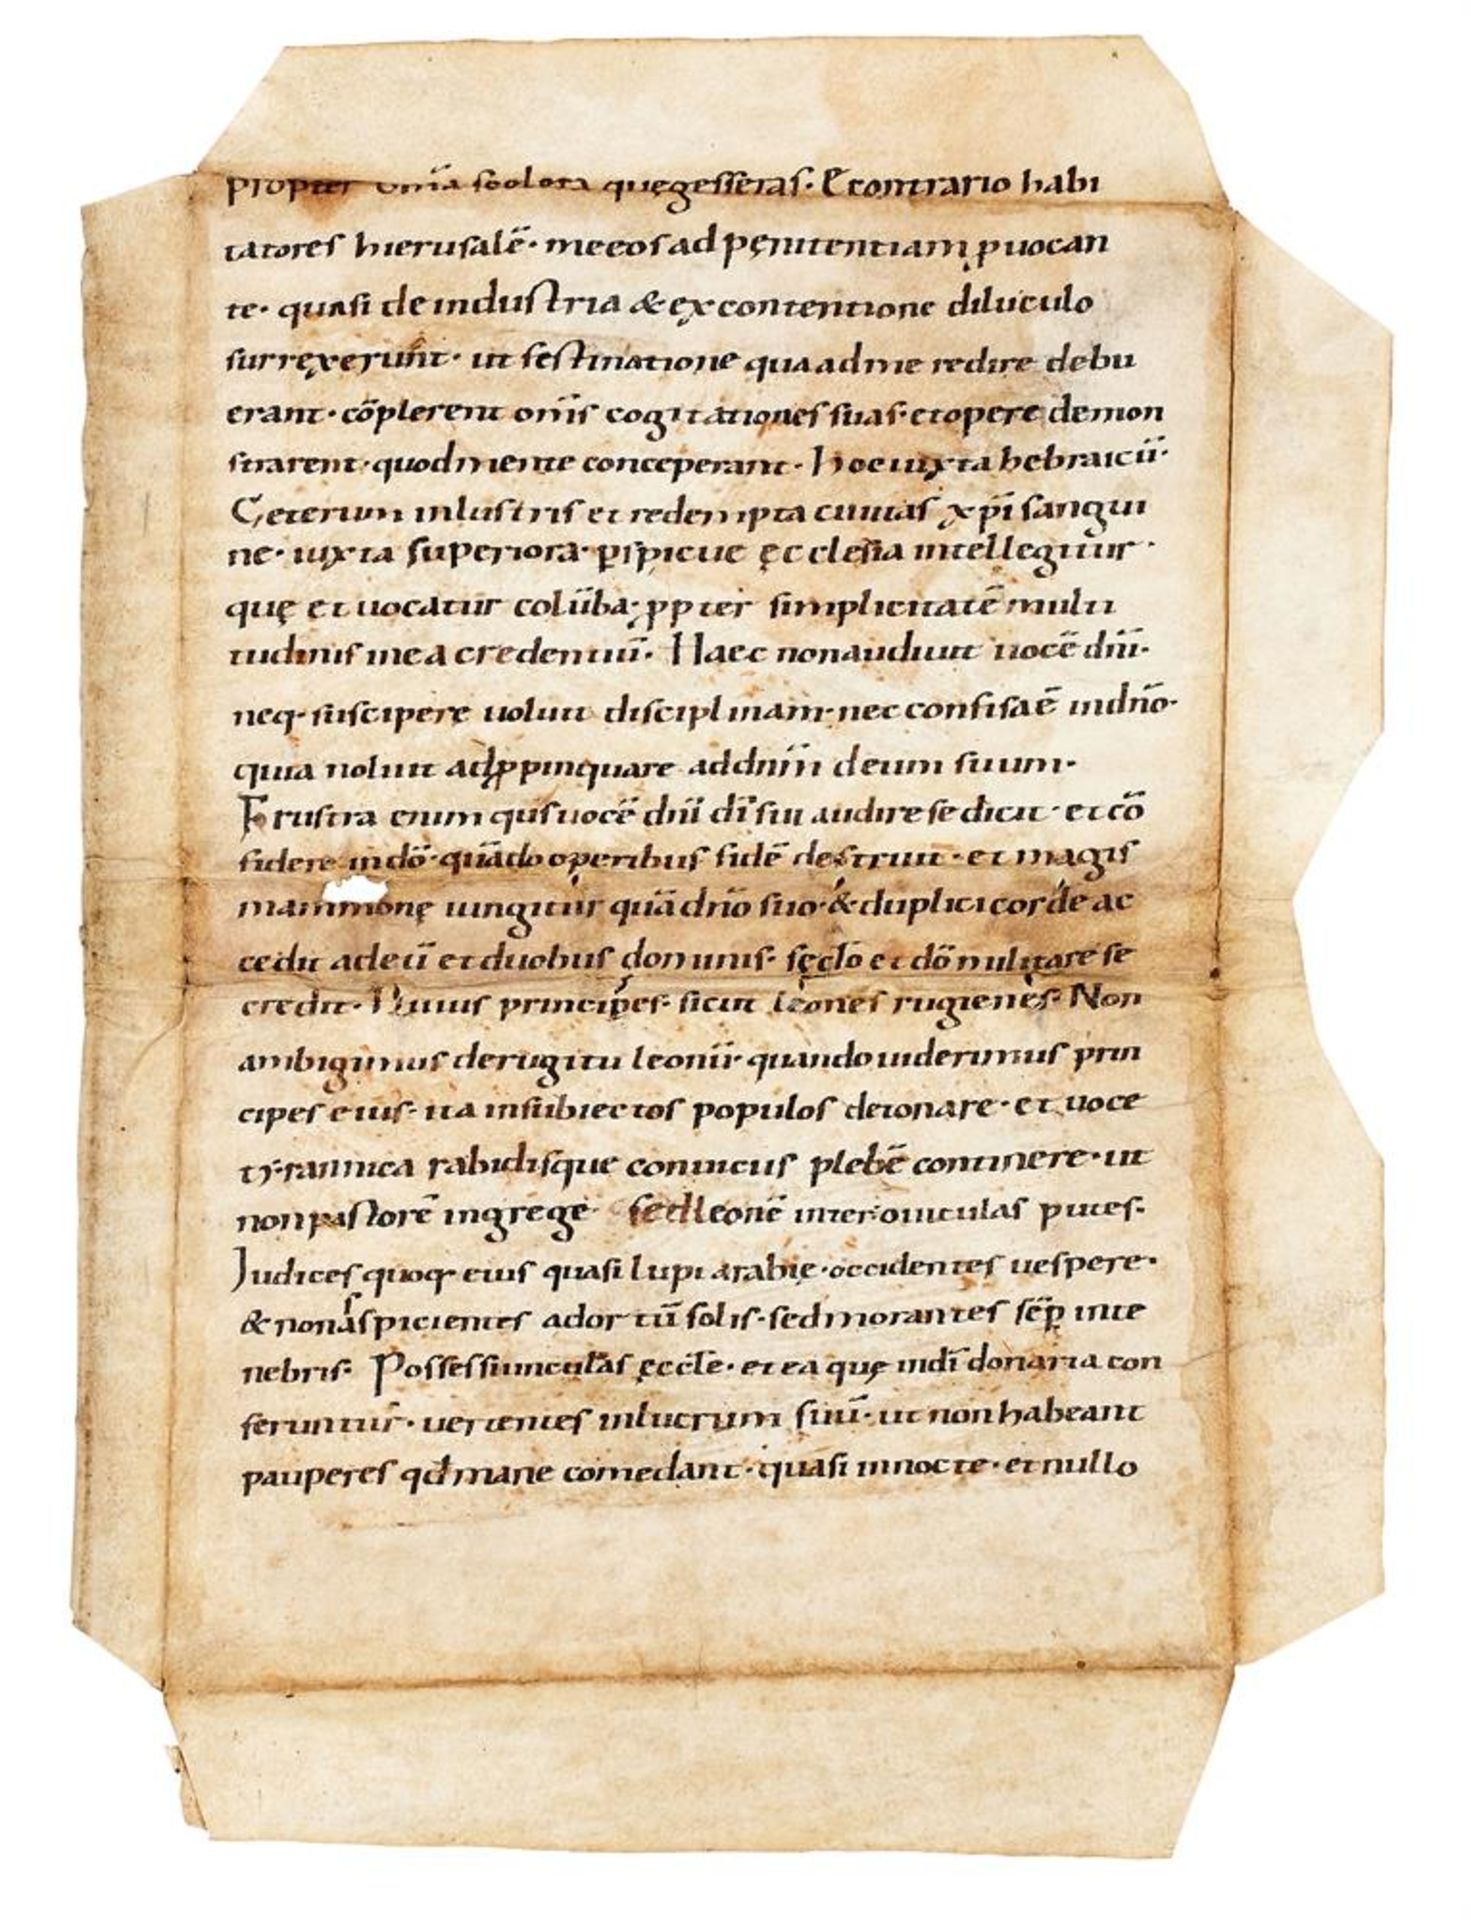 propter om̄a scelera quę gesseras· E contrario habi
tatores hierusalē· me eos ad pęnitentiam ꝓuocan
te· quasi de industria & ex contentione diluculo
surrexerunt· ut festinatione qua ad me redire debu
erant· cōplerent om̄s cogitationes suas· et opere demon
strarent· quod mente conceperant· Hoc iuxta hebraicū·
Ceterum inlustris et redempta ciuitas xp̄i sangui
ne· iuxta superiora· ꝑspicue ęcclesia intellegitur·
quę et uocatur colūba· ꝓpter simplicitatē multi
tudinis in ea credentiū· Haec non audiuit uocē dn̄i·
neq· suscipere uoluit disciplinam· nec confisa ē in dn̄o·
quia noluit adꝓpinquare ad dn̄m deum suum·
Frustra enim quis uocē dn̄i dī sui audire se dicit· et cō
fidere in dō· quādo operibus fidē destruit· et magis
mammonę iungitur quā dn̄o suo· & duplici corde ac
cedit ad eū et duobus dominis· sęclo et dō militare se
credit· Huius principes· sicut leones rugientes· Non
ambigimus de rugitu leonū· quando uiderimus prin
cipes eius· ita in subiectos populos detonare· et uoce
tyrannica rabidisque conuiciis plebē continere· ut
non pastorē in grege sed leonē inter ouiculas putes·
Judices quoq· eius quasi lupi arabię· occidentes uespere·
& non aspicientes ad ortū solis· sed morantes sēp in te
nebris· Possessiunculas ęccle· et ea quę in dī donaria con
feruntur· uertentes in lucrum suū· ut non habeant
pauperes qd mane comedant· quasi in nocte· et nullo